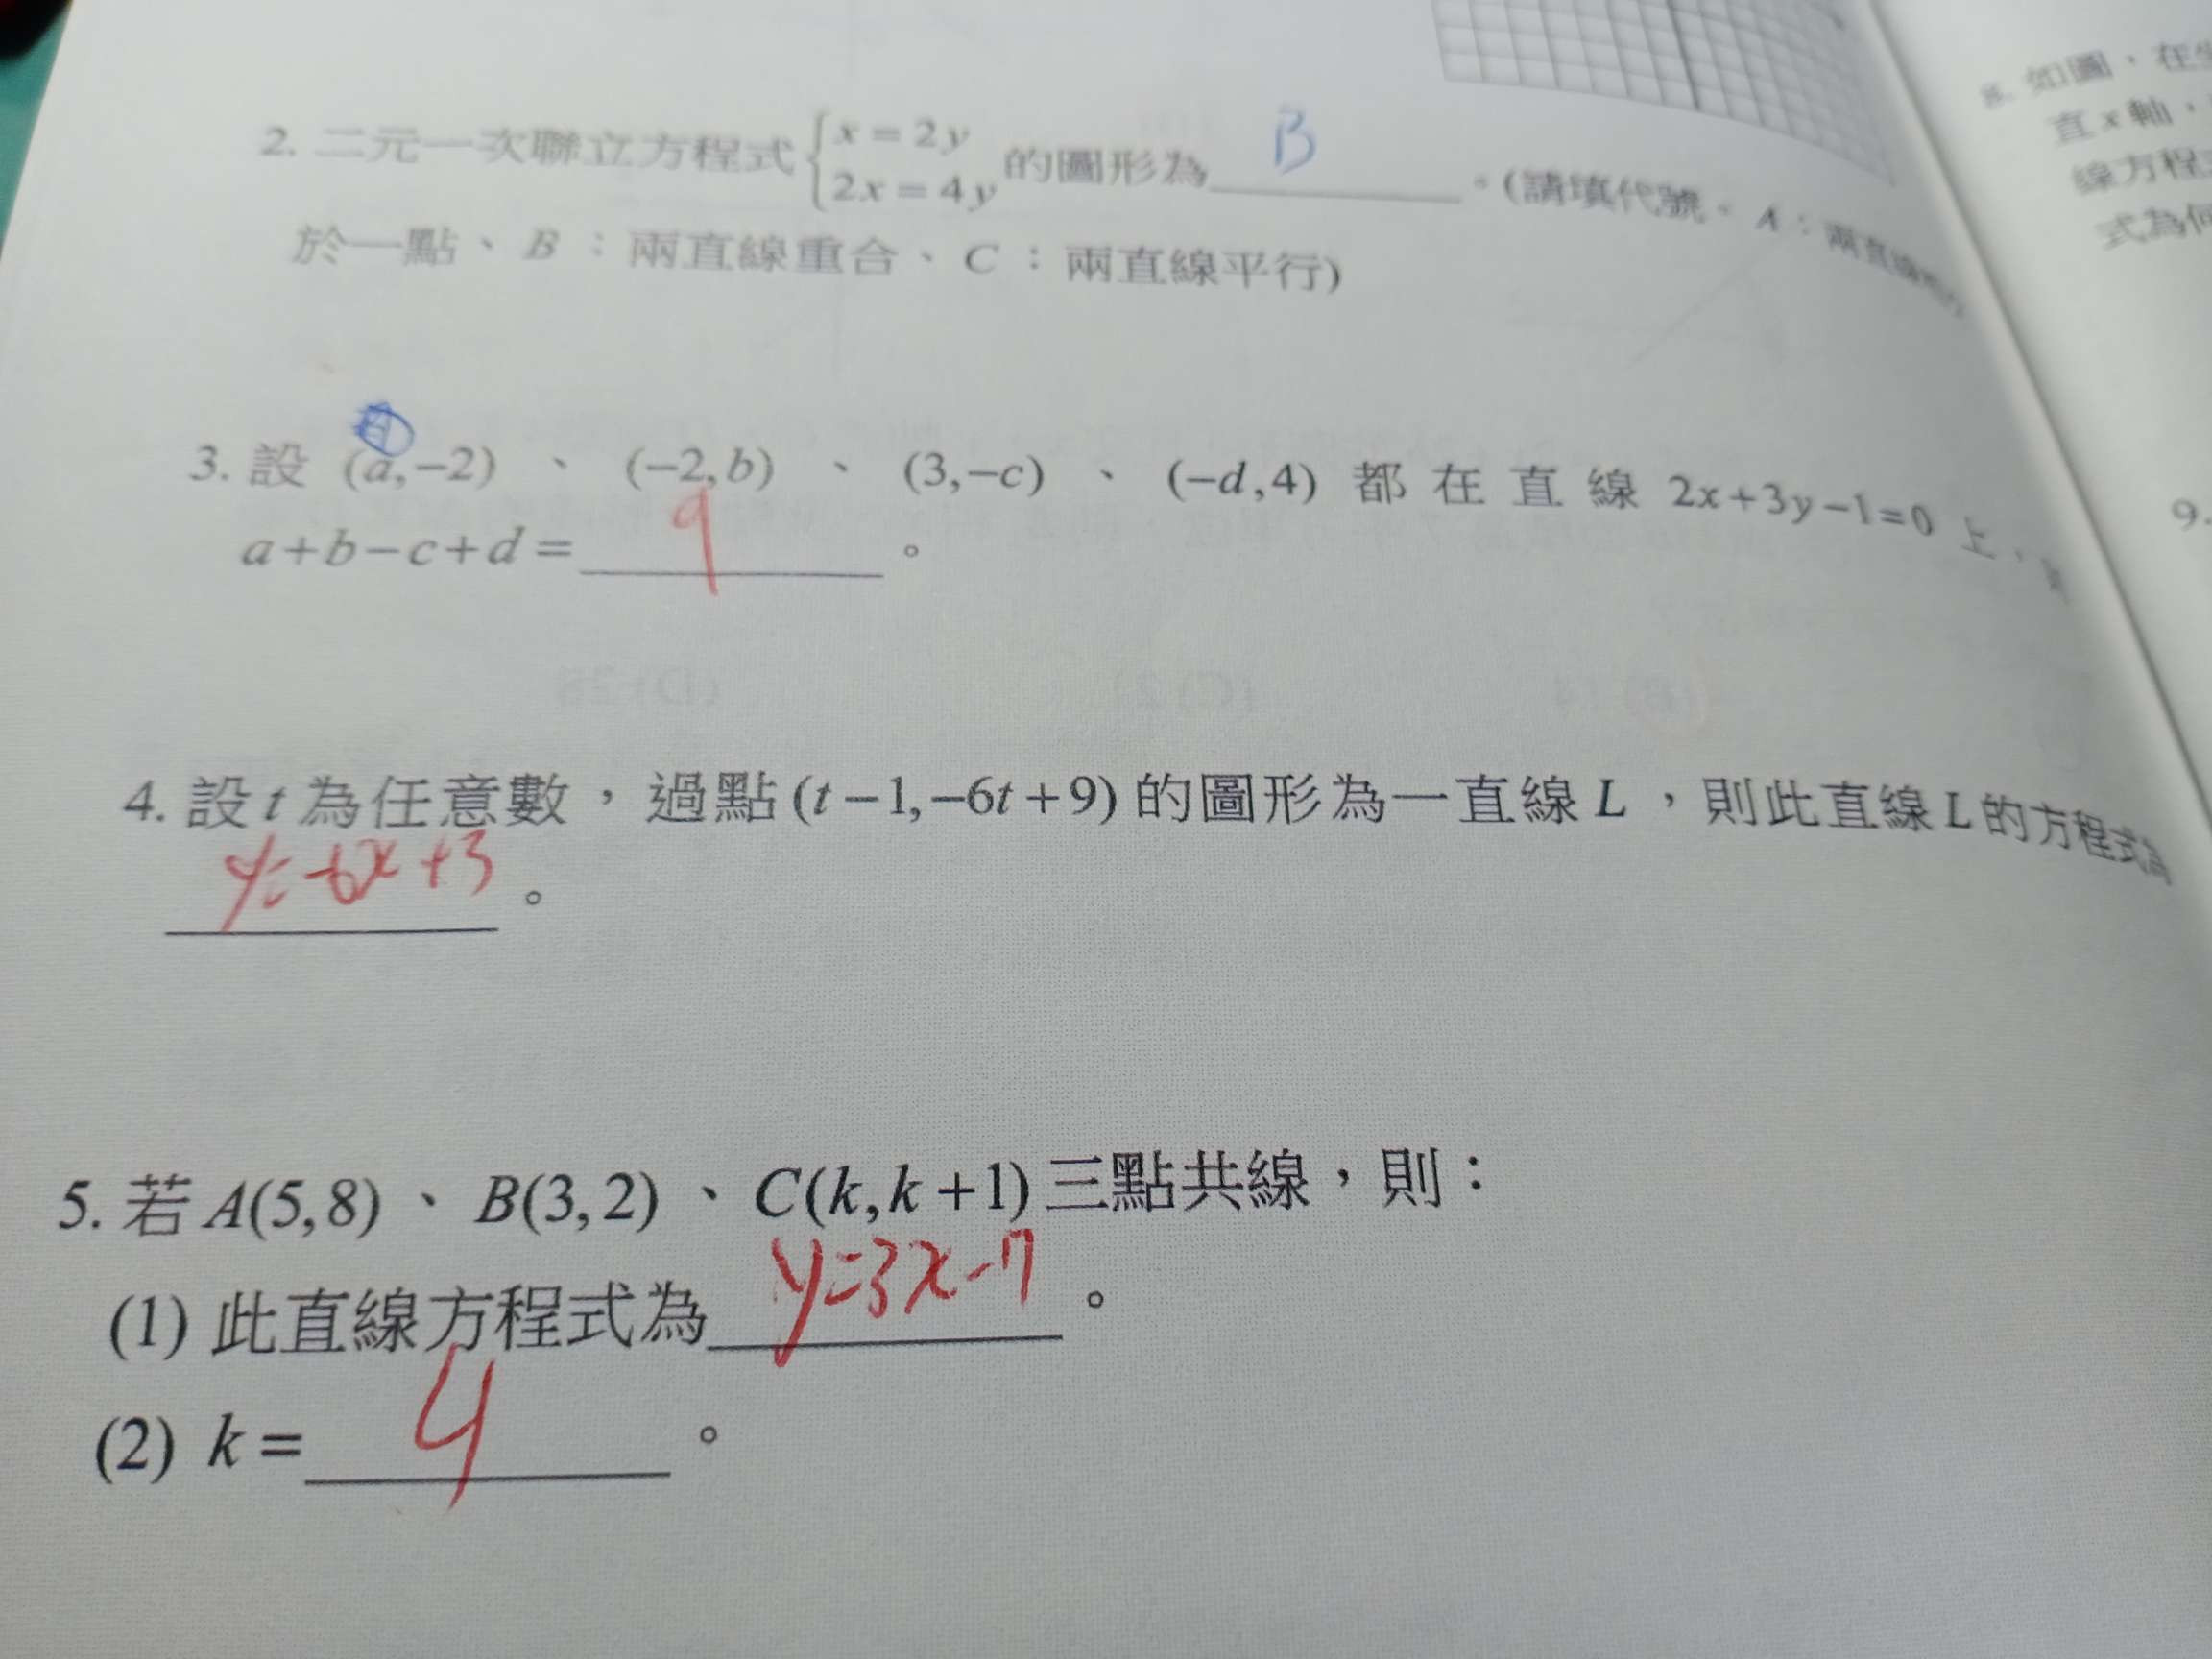 2. 二元一次聯立方程式 { x = 2y
2x = 4y 的圖形為 B 。(請填代號。A：兩直線
於一點、B：兩直線重合、C：兩直線平行)
3. 設 (a,−2) 、 (−2,b) 、 (3,−c) 、 (−d,4) 都在直線 2x+3y−1=0 上，
a+b−c+d= 9 。
4. 設 t 為任意數，過點 (t−1,−6t+9) 的圖形為一直線 L ，則此直線 L 的方程式為
y=-6x+3 。
5. 若 A(5,8) 、 B(3,2) 、 C(k,k+1) 三點共線，則：
(1) 此直線方程式為 y=3x-7 。
(2) k= 4 。
8. 如圖，在
直 x 軸，
線方程
式為何
9.